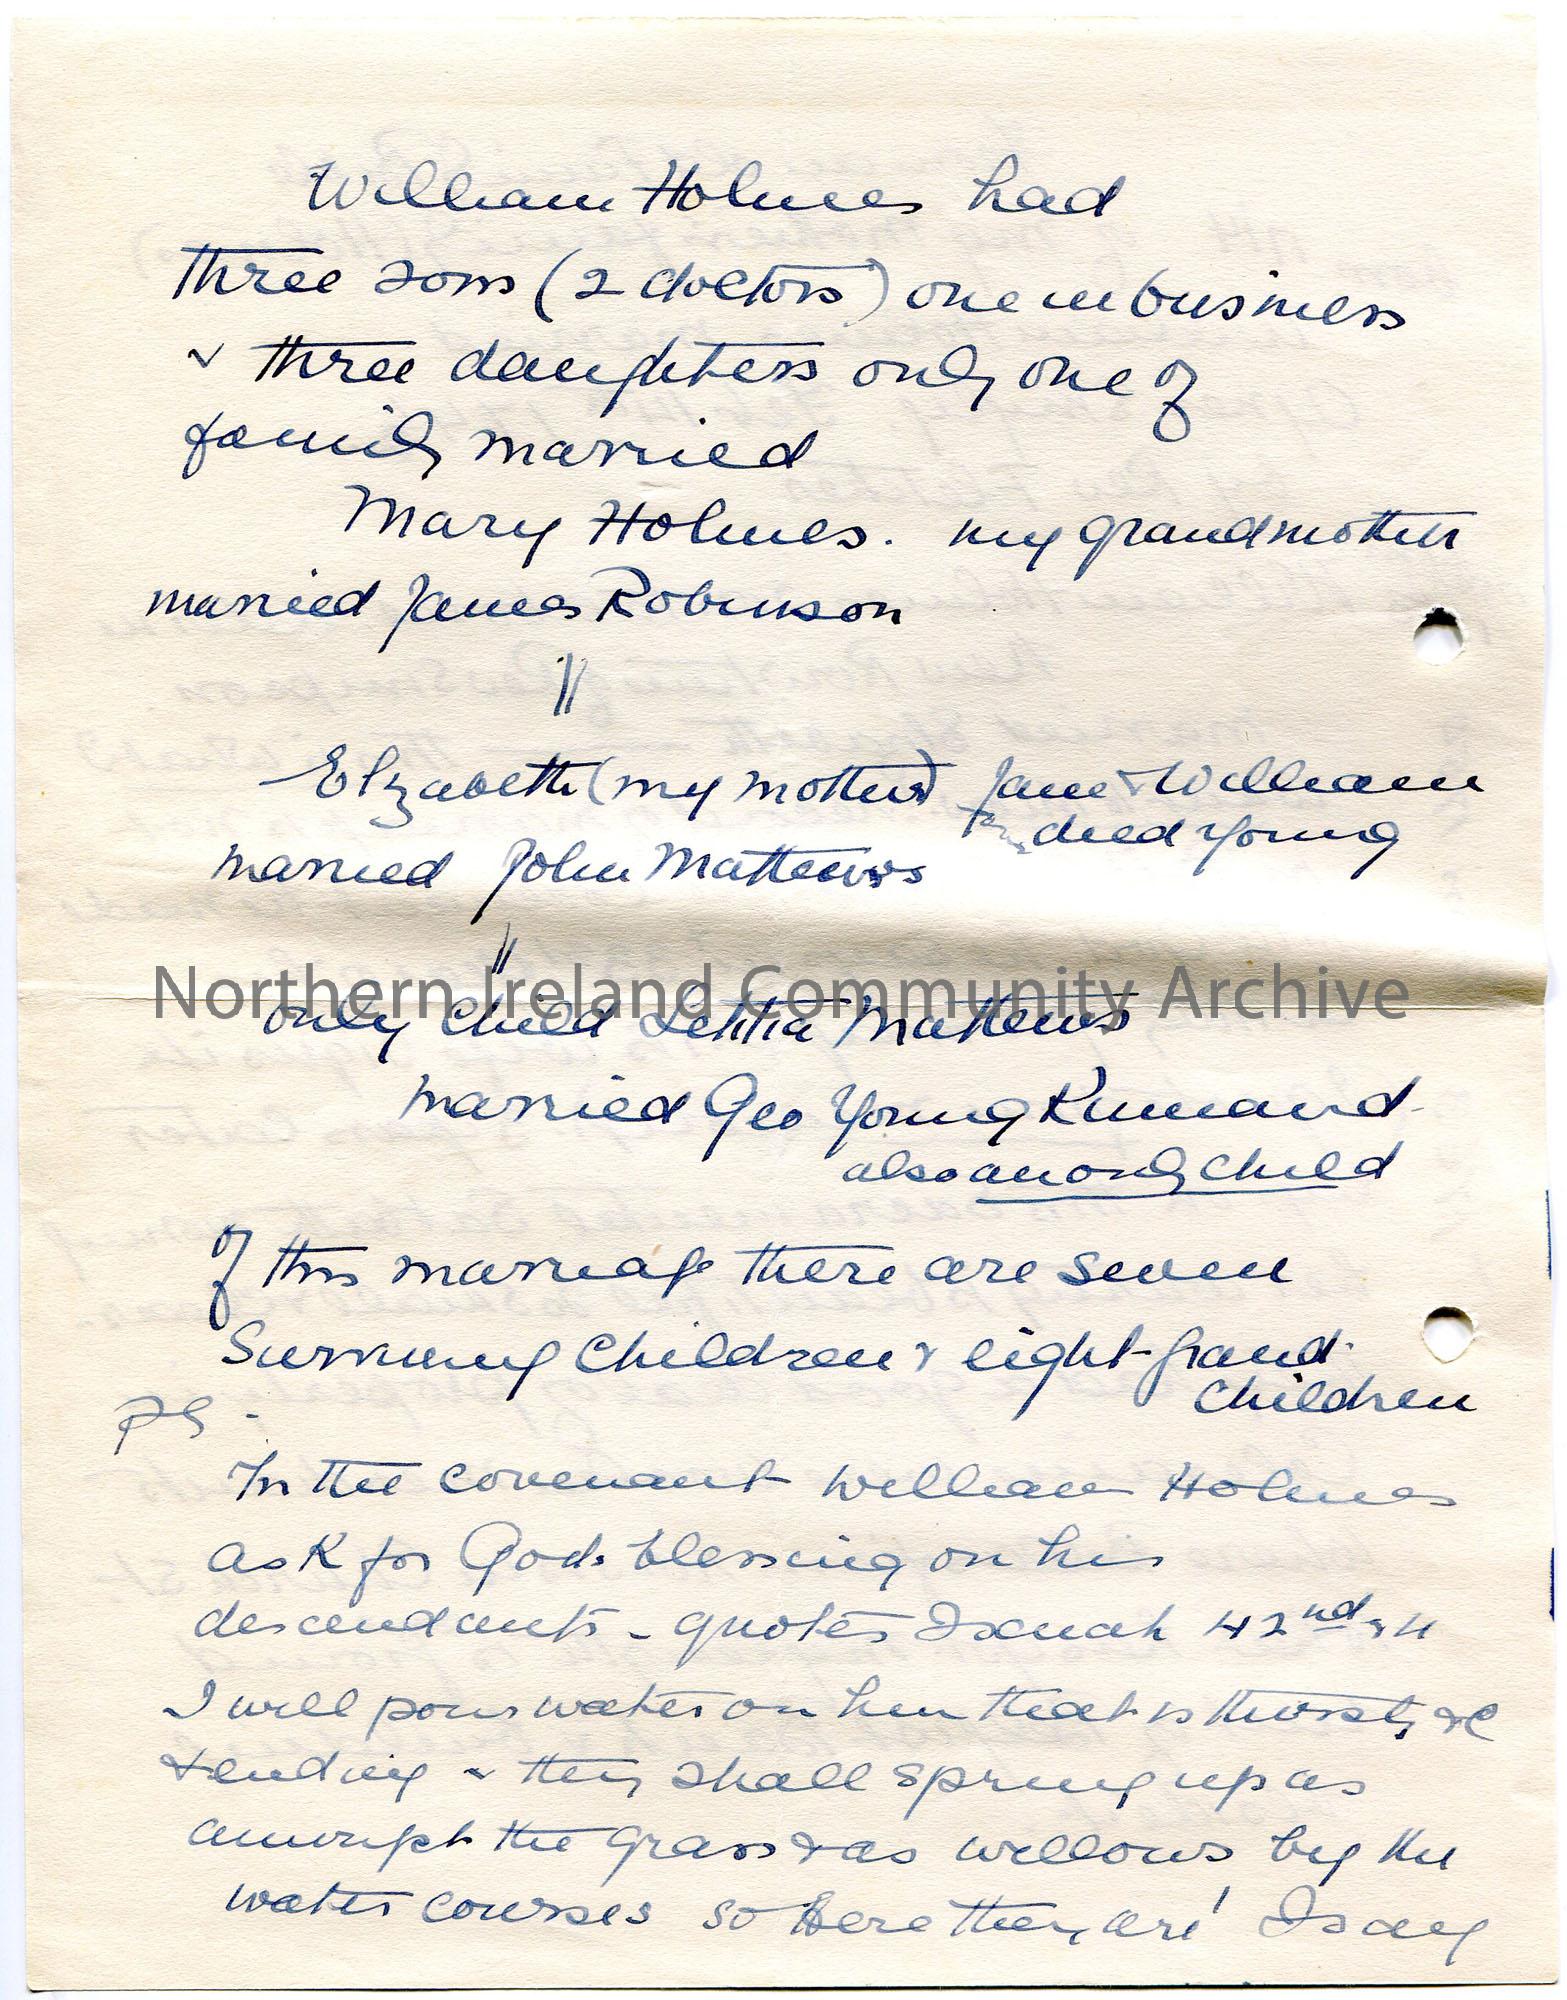 William Holmes had
three sons (2 doctors) one in business
& three daughters only one of
family married
Mary Holmes. my grandmother
married James Robinson
Elzabeth (my mother) Jane & William
died young
married John Mattews
Northern Ireland Community Archive
only child Letitia Mattews
married Geo Young Kinnaird
also an only child
Of this marriage there are seven
Surviving Children & eight grand
children
PS -
In the covenant William Holmes
ask for Gods blessing on his
descendants - quotes Isaiah 42nd
I will pour water on him that is thirsty &c
& ending & they shall spring up as
amongst the grass & as willows by the
water courses so here they are! I say